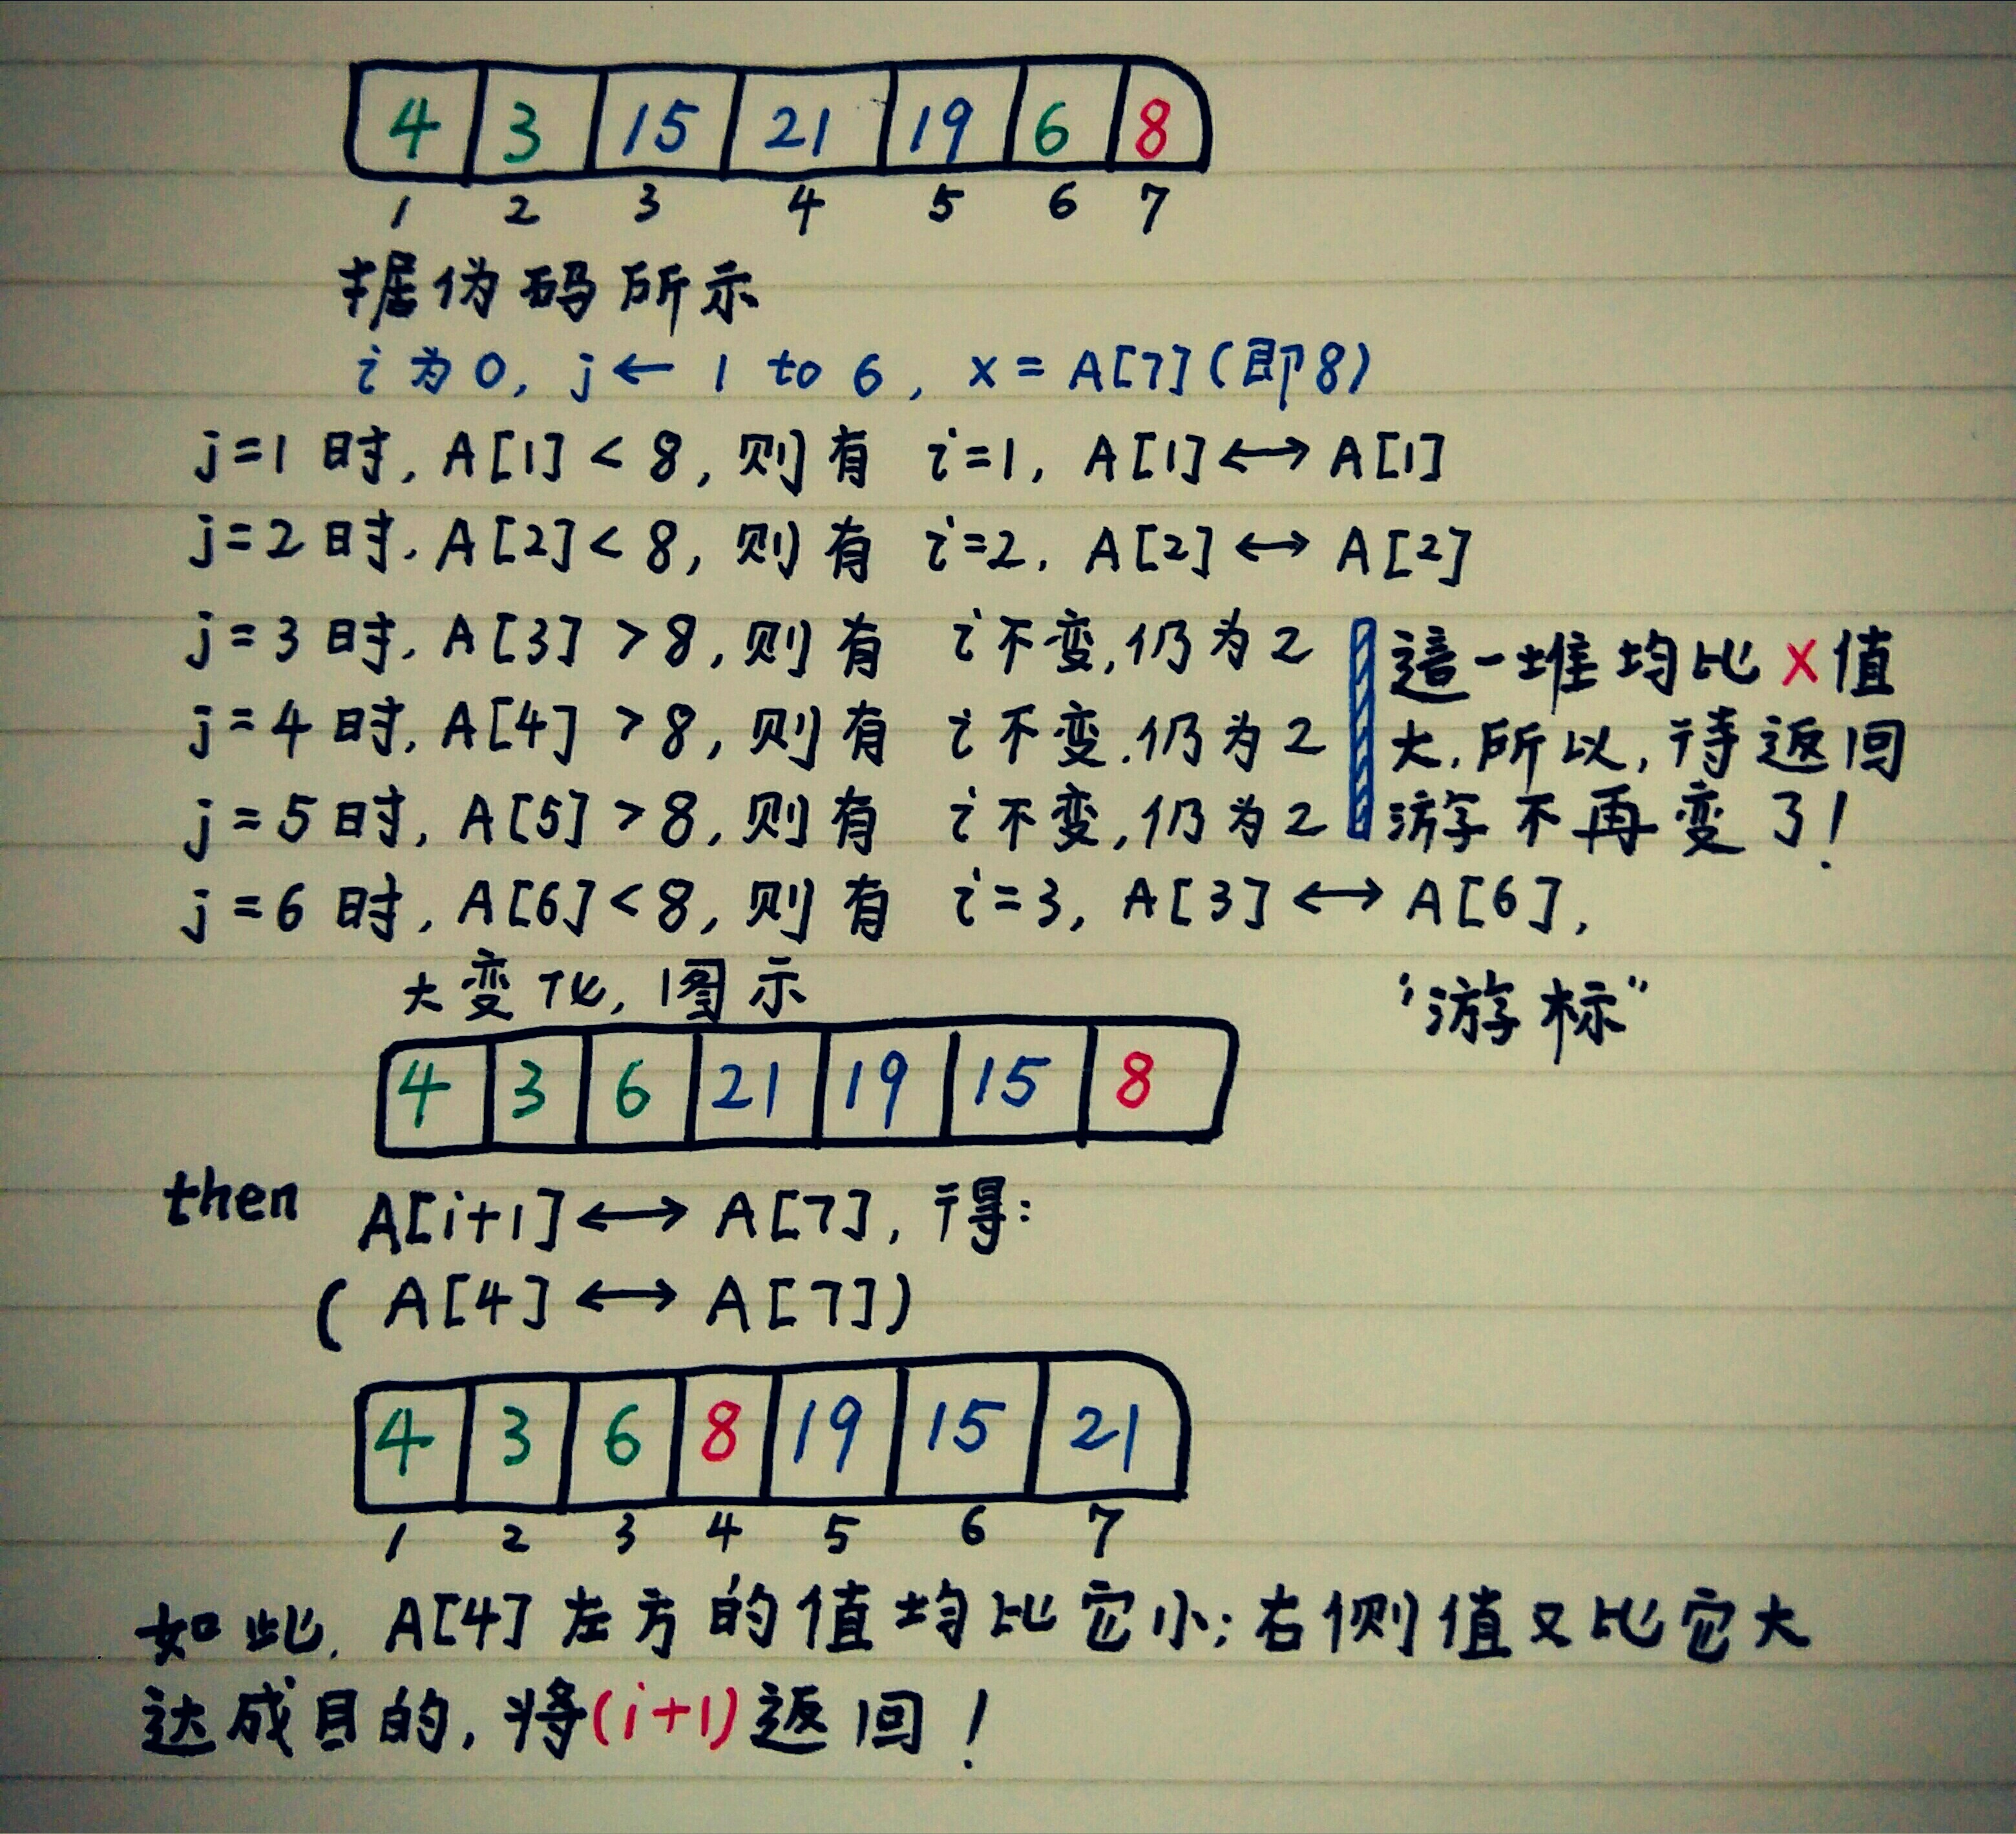 4 3 15 21 19 6 8
1 2 3 4 5 6 7
据伪码所示
i为0, j← 1 to 6, x = A[7](即8)
j=1时, A[1] < 8, 则有 i=1, A[1]↔A[1]
j=2时, A[2] < 8, 则有 i=2, A[2]↔A[2]
j=3时, A[3] > 8, 则有 i不变,仍为2
j=4时, A[4] > 8, 则有 i不变,仍为2
j=5时, A[5] > 8, 则有 i不变,仍为2
這一堆均比X值
大,所以,待返回
游不再变了!
j=6时, A[6] < 8, 则有 i=3, A[3]↔A[6],
大变化,图示
"游标"
4 3 6 21 19 15 8
then A[i+1]↔A[7], 得:
(A[4]↔A[7])
4 3 6 8 19 15 21
1 2 3 4 5 6 7
如此, A[4]左方的值均比它小;右侧值又比它大
达成目的, 将(i+1)返回!